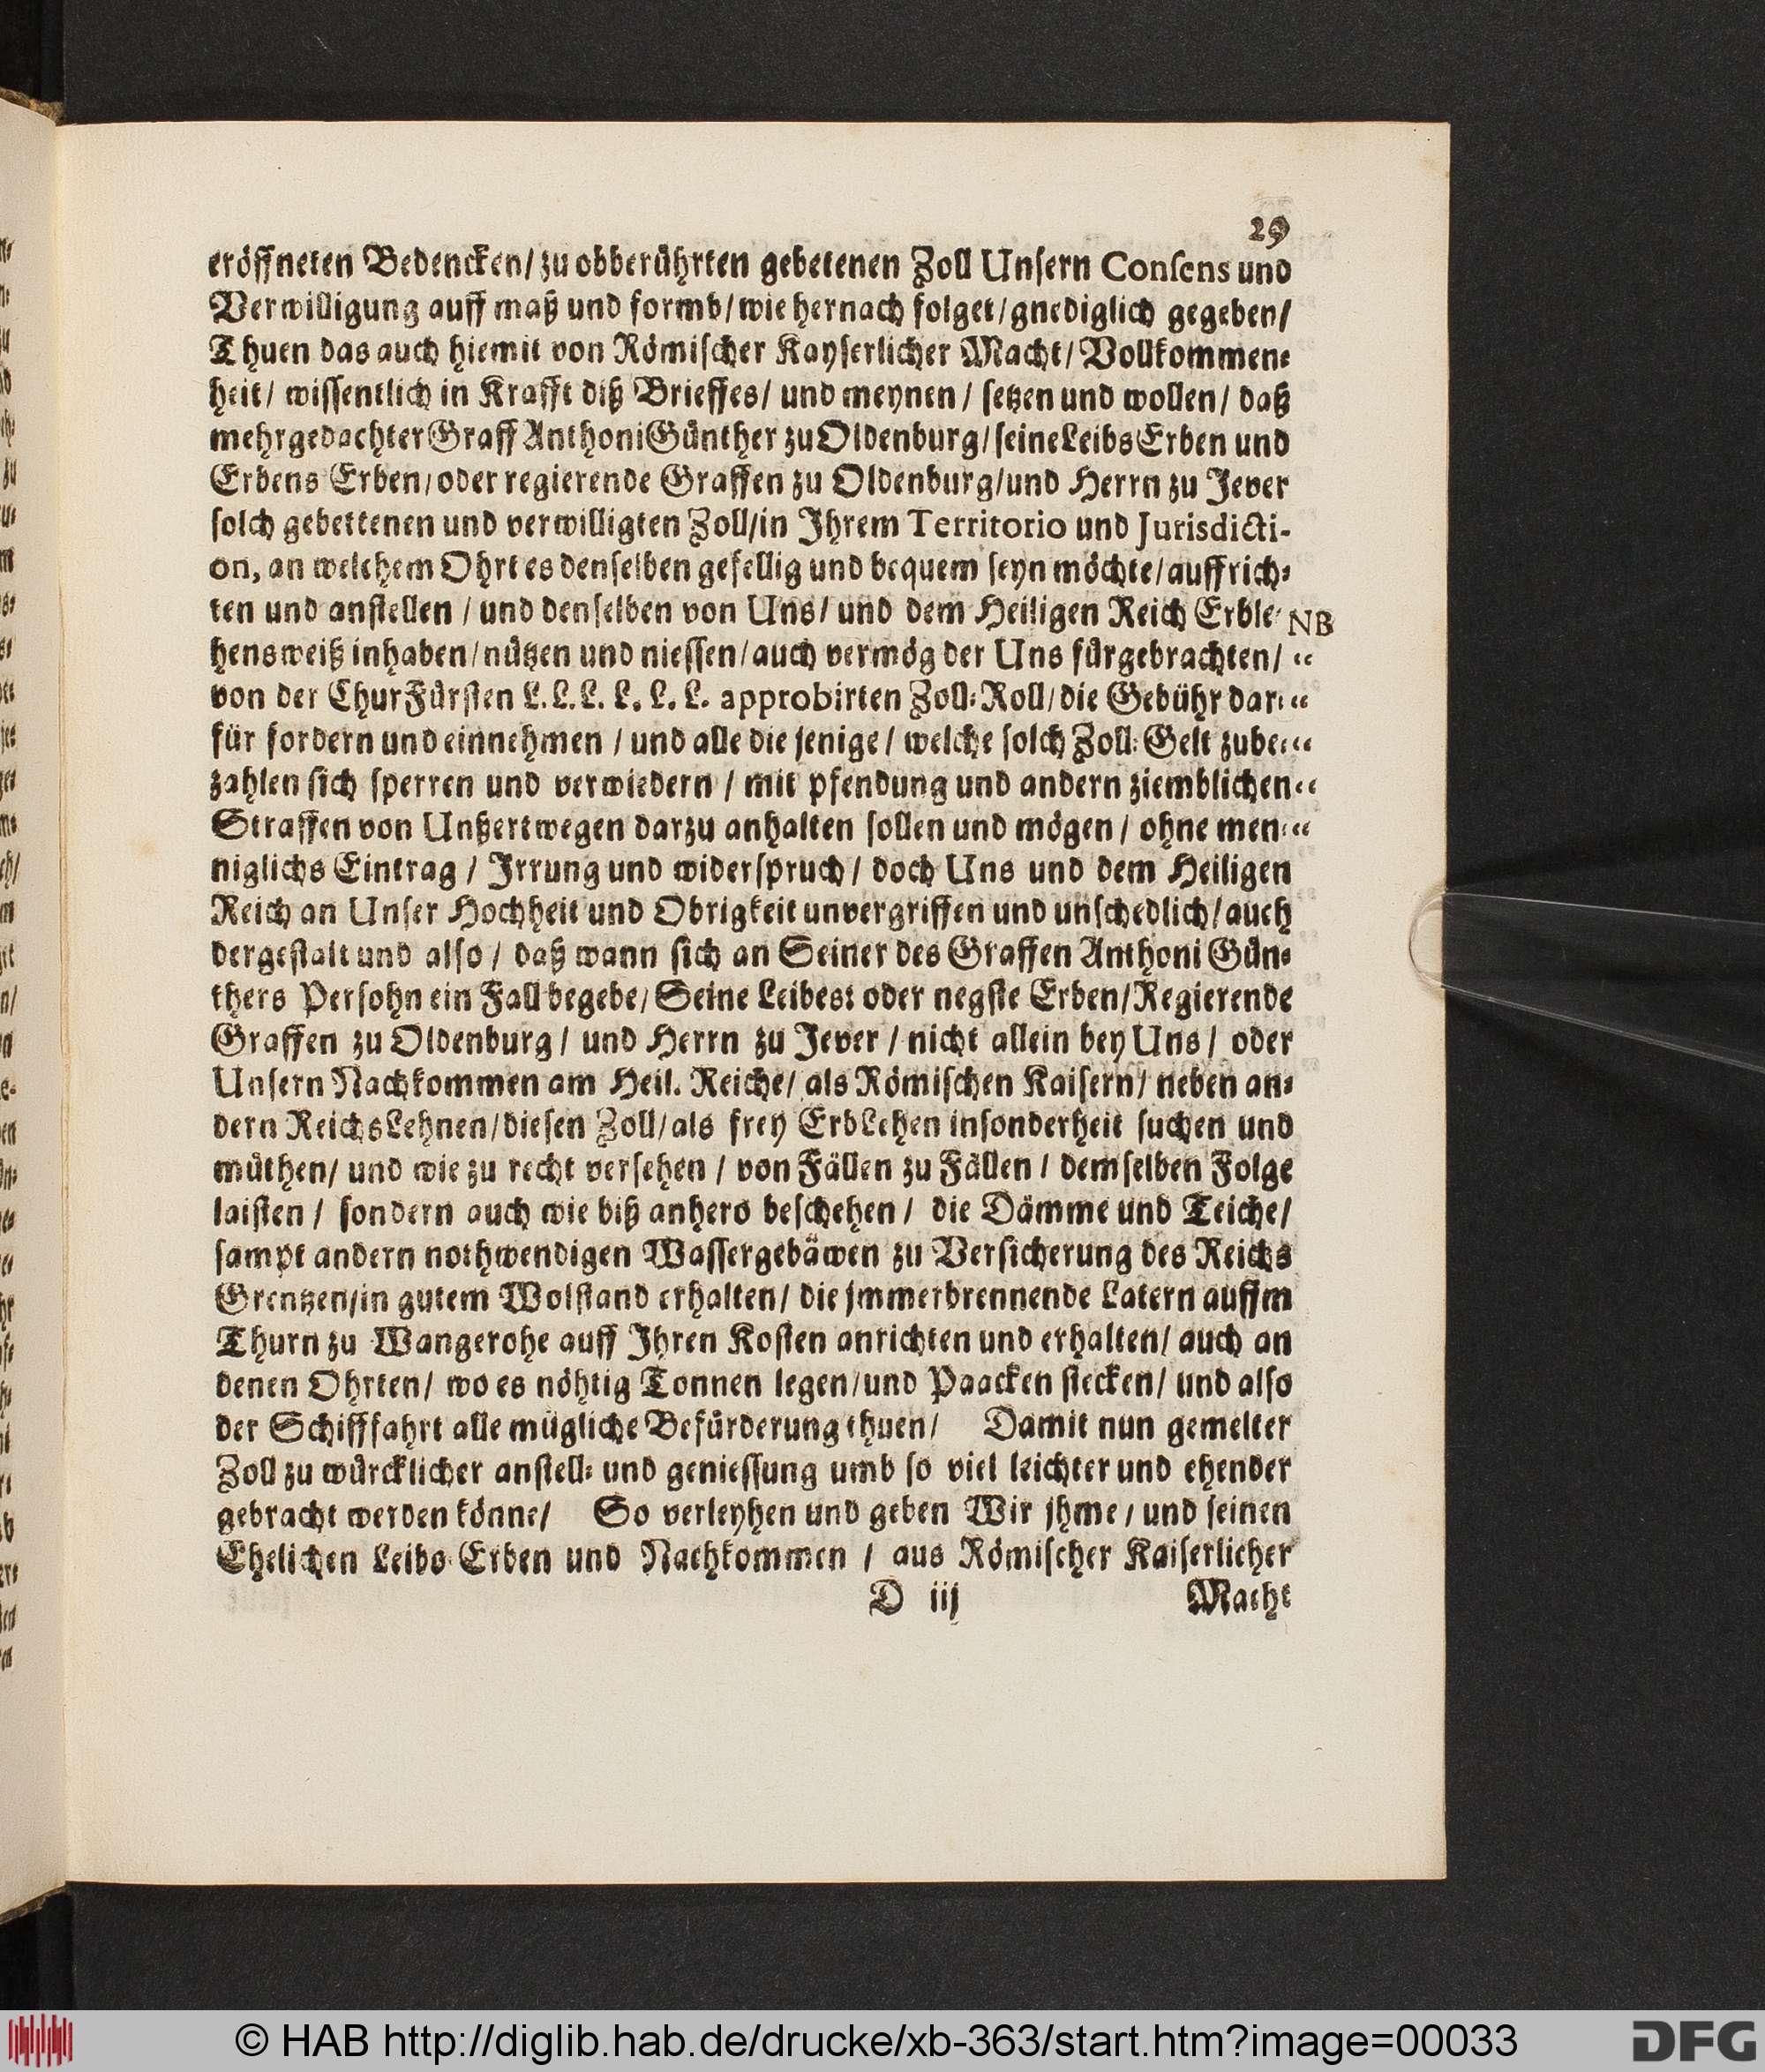 29
eröffneten Bedencken/ zu obberührten gebetenen Zoll Unſern Conſens und
Verwilligung auff maß und formb/ wie hernach folget/ gnediglich gegeben/
Thuen das auch hiemit von Römiſcher Kayſerlicher Macht/ Vollkommen⸗
heit/ wiſſentlich in Krafft diß Brieffes/ und meynen/ ſetzen und wollen/ daß
mehrgedachter Graff Anthoni Günther zu Oldenburg/ ſeine Leibs Erben und
Erbens Erben/ oder regierende Graffen zu Oldenburg/ und Herrn zu Jever
ſolch gebettenen und verwilligten Zoll/ in Ihrem Territorio und Jurisdicti-
on, an welchem Ohrt es denſelben gefellig und bequem ſeyn möchte/ auffrich⸗
ten und anſtellen / und denſelben von Uns/ und dem Heiligen Reich Erble⸗ NB
hensweiß inhaben/ nützen und nieſſen/ auch vermög der Uns fürgebrachten/ “
von der ChurFürſten L. L. L. L. L. L. approbirten Zoll⸗Roll/ die Gebühr dar⸗ “
für fordern und einnehmen / und alle die jenige/ welche ſolch Zoll⸗Gelt zube⸗ “
zahlen ſich ſperren und verwiedern / mit pfendung und andern ziemblichen “
Straffen von Unßertwegen darzu anhalten ſollen und mögen/ ohne men⸗ “
niglichs Eintrag / Irrung und widerſpruch/ doch Uns und dem Heiligen
Reich an Unſer Hochheit und Obrigkeit unvergriffen und unſchedlich/ auch
dergeſtalt und alſo / daß wann ſich an Seiner des Graffen Anthoni Gün⸗
thers Perſohn ein Fall begebe/ Seine Leibes⸗ oder negſte Erben/ Regierende
Graffen zu Oldenburg/ und Herrn zu Jever / nicht allein bey Uns/ oder
Unſern Nachkommen am Heil. Reiche/ als Römiſchen Kaiſern/ neben an⸗
dern ReichsLehnen/ dieſen Zoll/ als frey ErbLehen inſonderheit ſuchen und
müthen/ und wie zu recht verſehen / von Fällen zu Fällen / demſelben Folge
laiſten / ſondern auch wie biß anhero beſchehen / die Dämme und Teiche/
ſampt andern nothwendigen Waſſergebäwen zu Verſicherung des Reichs
Grentzen/ in gutem Wolſtand erhalten/ die jmmerbrennende Latern auffm
Thurn zu Wangerohe auff Ihren Koſten anrichten und erhalten/ auch an
denen Ohrten/ wo es nöhtig Tonnen legen/ und Paacken ſtecken/ und alſo
der Schifffahrt alle mügliche Befürderung thuen/ Damit nun gemelter
Zoll zu würcklicher anſtell⸗ und genieſſung umb ſo viel leichter und ehender
gebracht werden könne/ So verleyhen und geben Wir jhme / und ſeinen
Ehelichen Leibs Erben und Nachkommen / aus Römiſcher Kaiſerlicher
D iij Macht
© HAB http://diglib.hab.de/drucke/xb-363/start.htm?image=00033
DFG